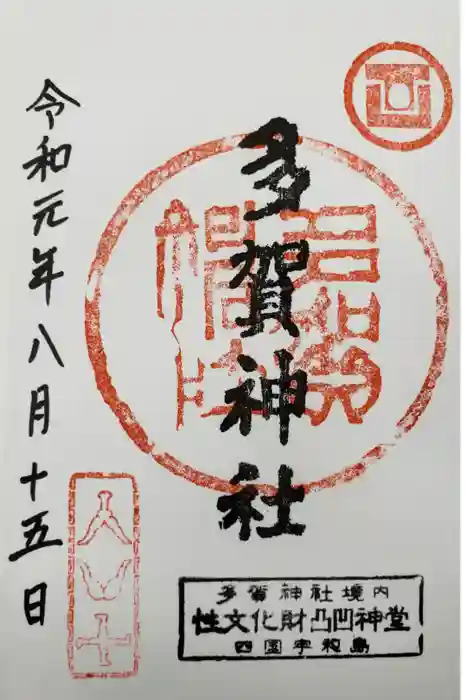 令和元年八月十五日
多賀神社
多賀神社境内
性文化財凸凹神堂
四国宇和島